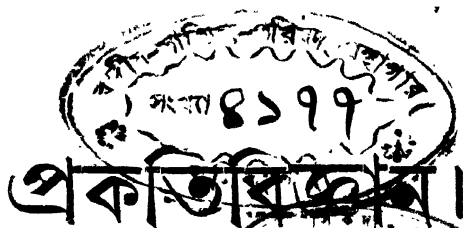 বঙ্গীয়-সাহিত্য-পরিষদ গ্রন্থাগার
সংখ্যা ৪১৭৭
প্রকৃতিবিজ্ঞান।